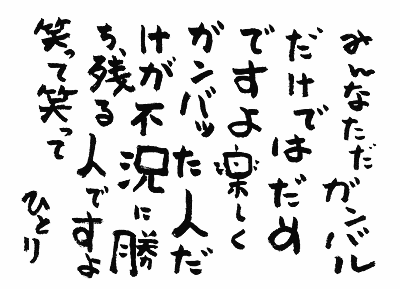 みんなただガンバル
だけではだめ
ですよ楽しく
ガンバッた人だ
けが不況に勝
ち残る人ですよ
笑って笑って
ひとり